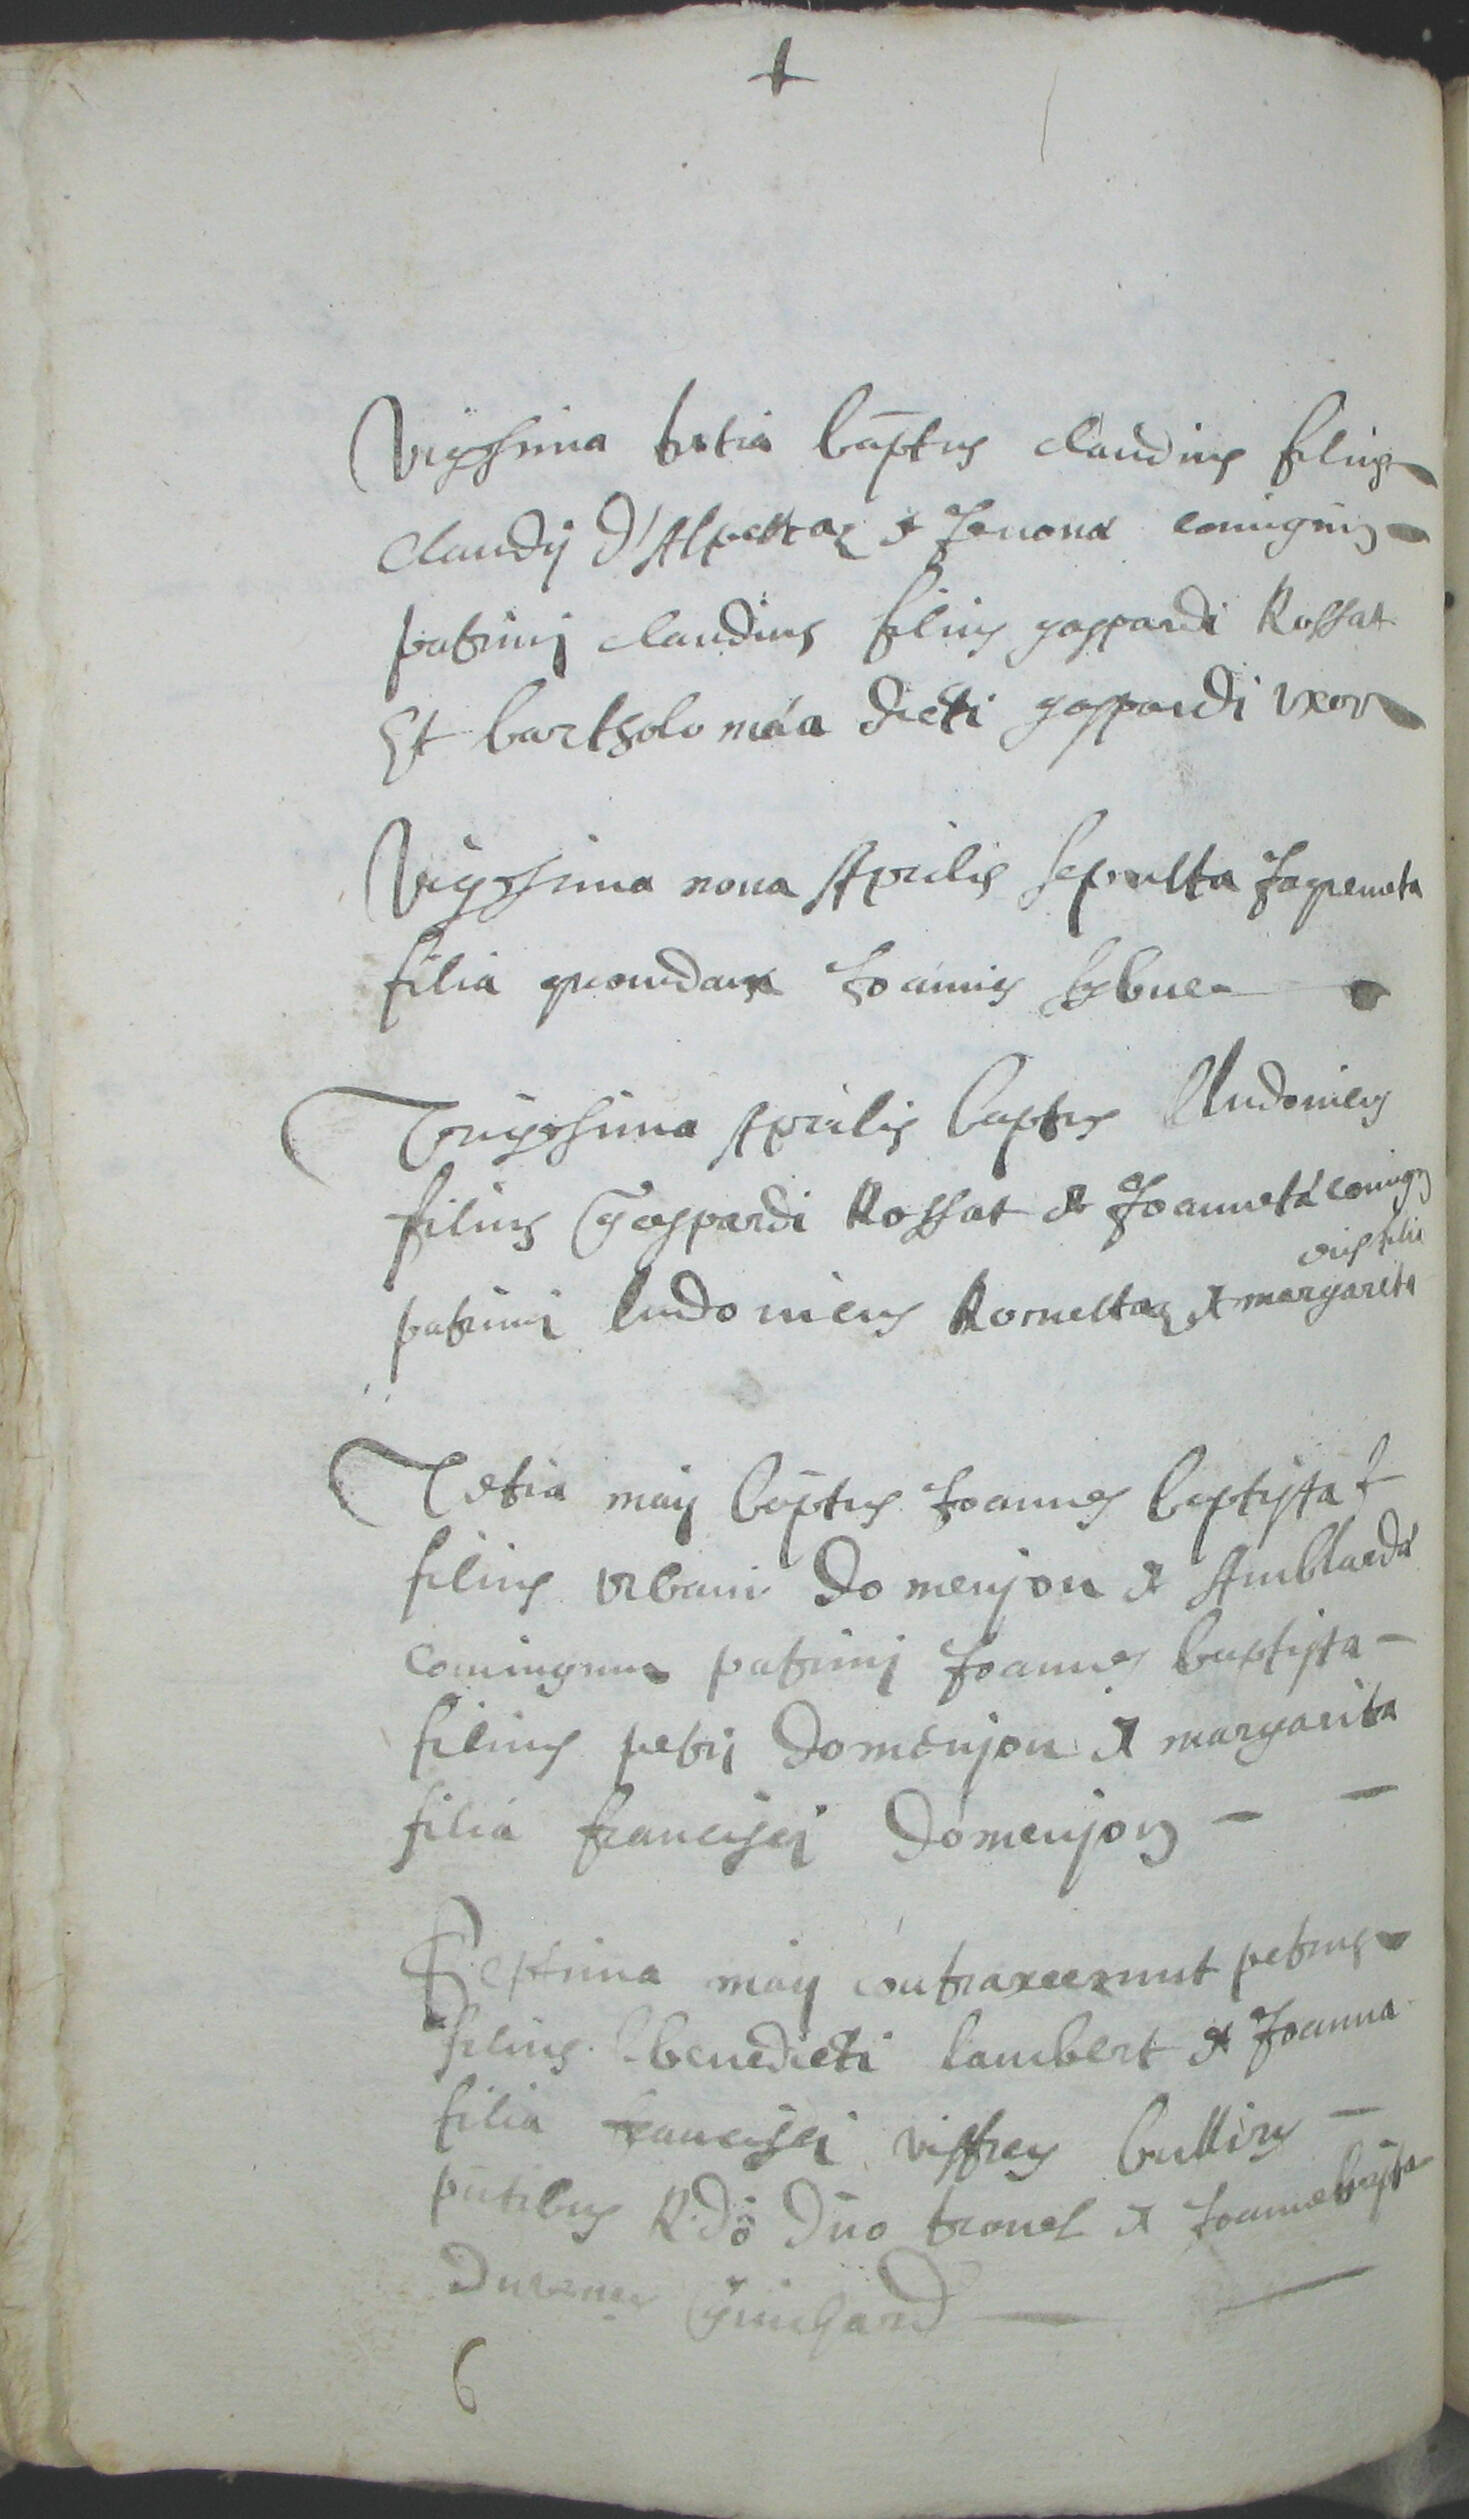 +
Vigessima tertia bāptus claudius filius
Claudij D'Alpettaz & Jenonæ coniugūm
patrinj claudius filius gaspardi Rossat
Et bartholomæa dicti gaspardi vxor
Vigessima nona Aprilis sepulta Jaquemeta
filia quondam Joānnis
Trigessima Aprilis baptus Ludouicus
filius Gaspardi Rossat & Joannetæ coniugum
eius filia
patrinj ludouicus Romettaz & margareta
Tertia maij bāptus Joannes baptista
filius vrbani Domenjon & Amblardæ
coniugum patrinj Joannes baptista
filius petri Domenjon & margarita
filia francisci Domenjon
Septima maij contraxerunt petrus
filius benedicti lambert & Joanna
filia francisci viffrey
pūtibus R.do Dno tronel &
Guichard
6